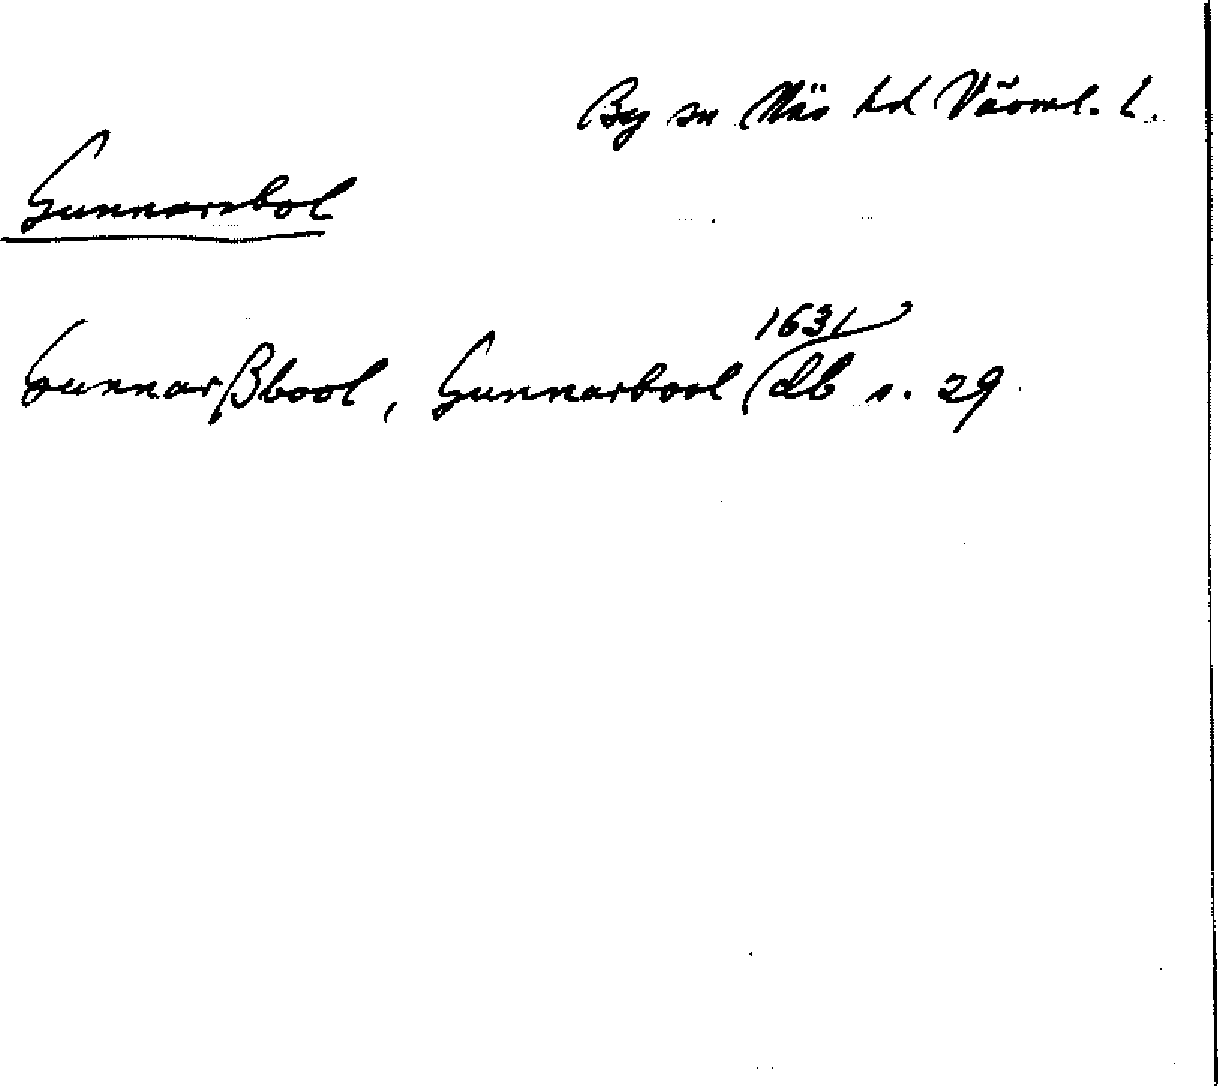 By sn Näs hd Värml. l.
Gunnarsbol
1631
Gunnarßbool, Gunnarbool db s. 29